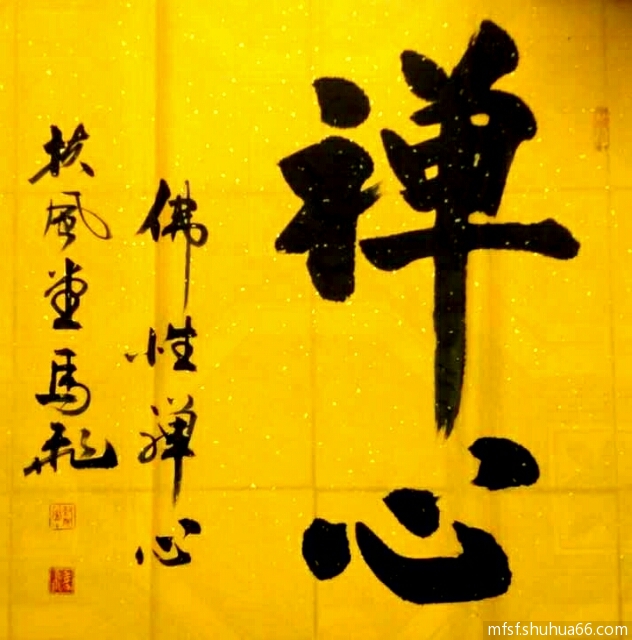 禅心
佛性禅心
扶風堂馬飛
mfsf.shuhua66.com